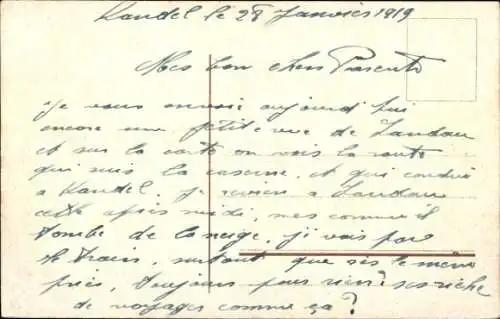 Kandel le 28 Janvier 1919
Mes bon chers Parents
Je vous envoie aujourd'hui
encore une petite vue de Landau
et sur la carte on vois la route
qui suis la caserne. et qui conduis
a Kandel. je reviens a Landau
cette après midi, mes comme il
tombe de la neige. j'y vais par
le train, surtout que ses le même
prix, toujours pour rien? ses riche
de voyages comme ça?